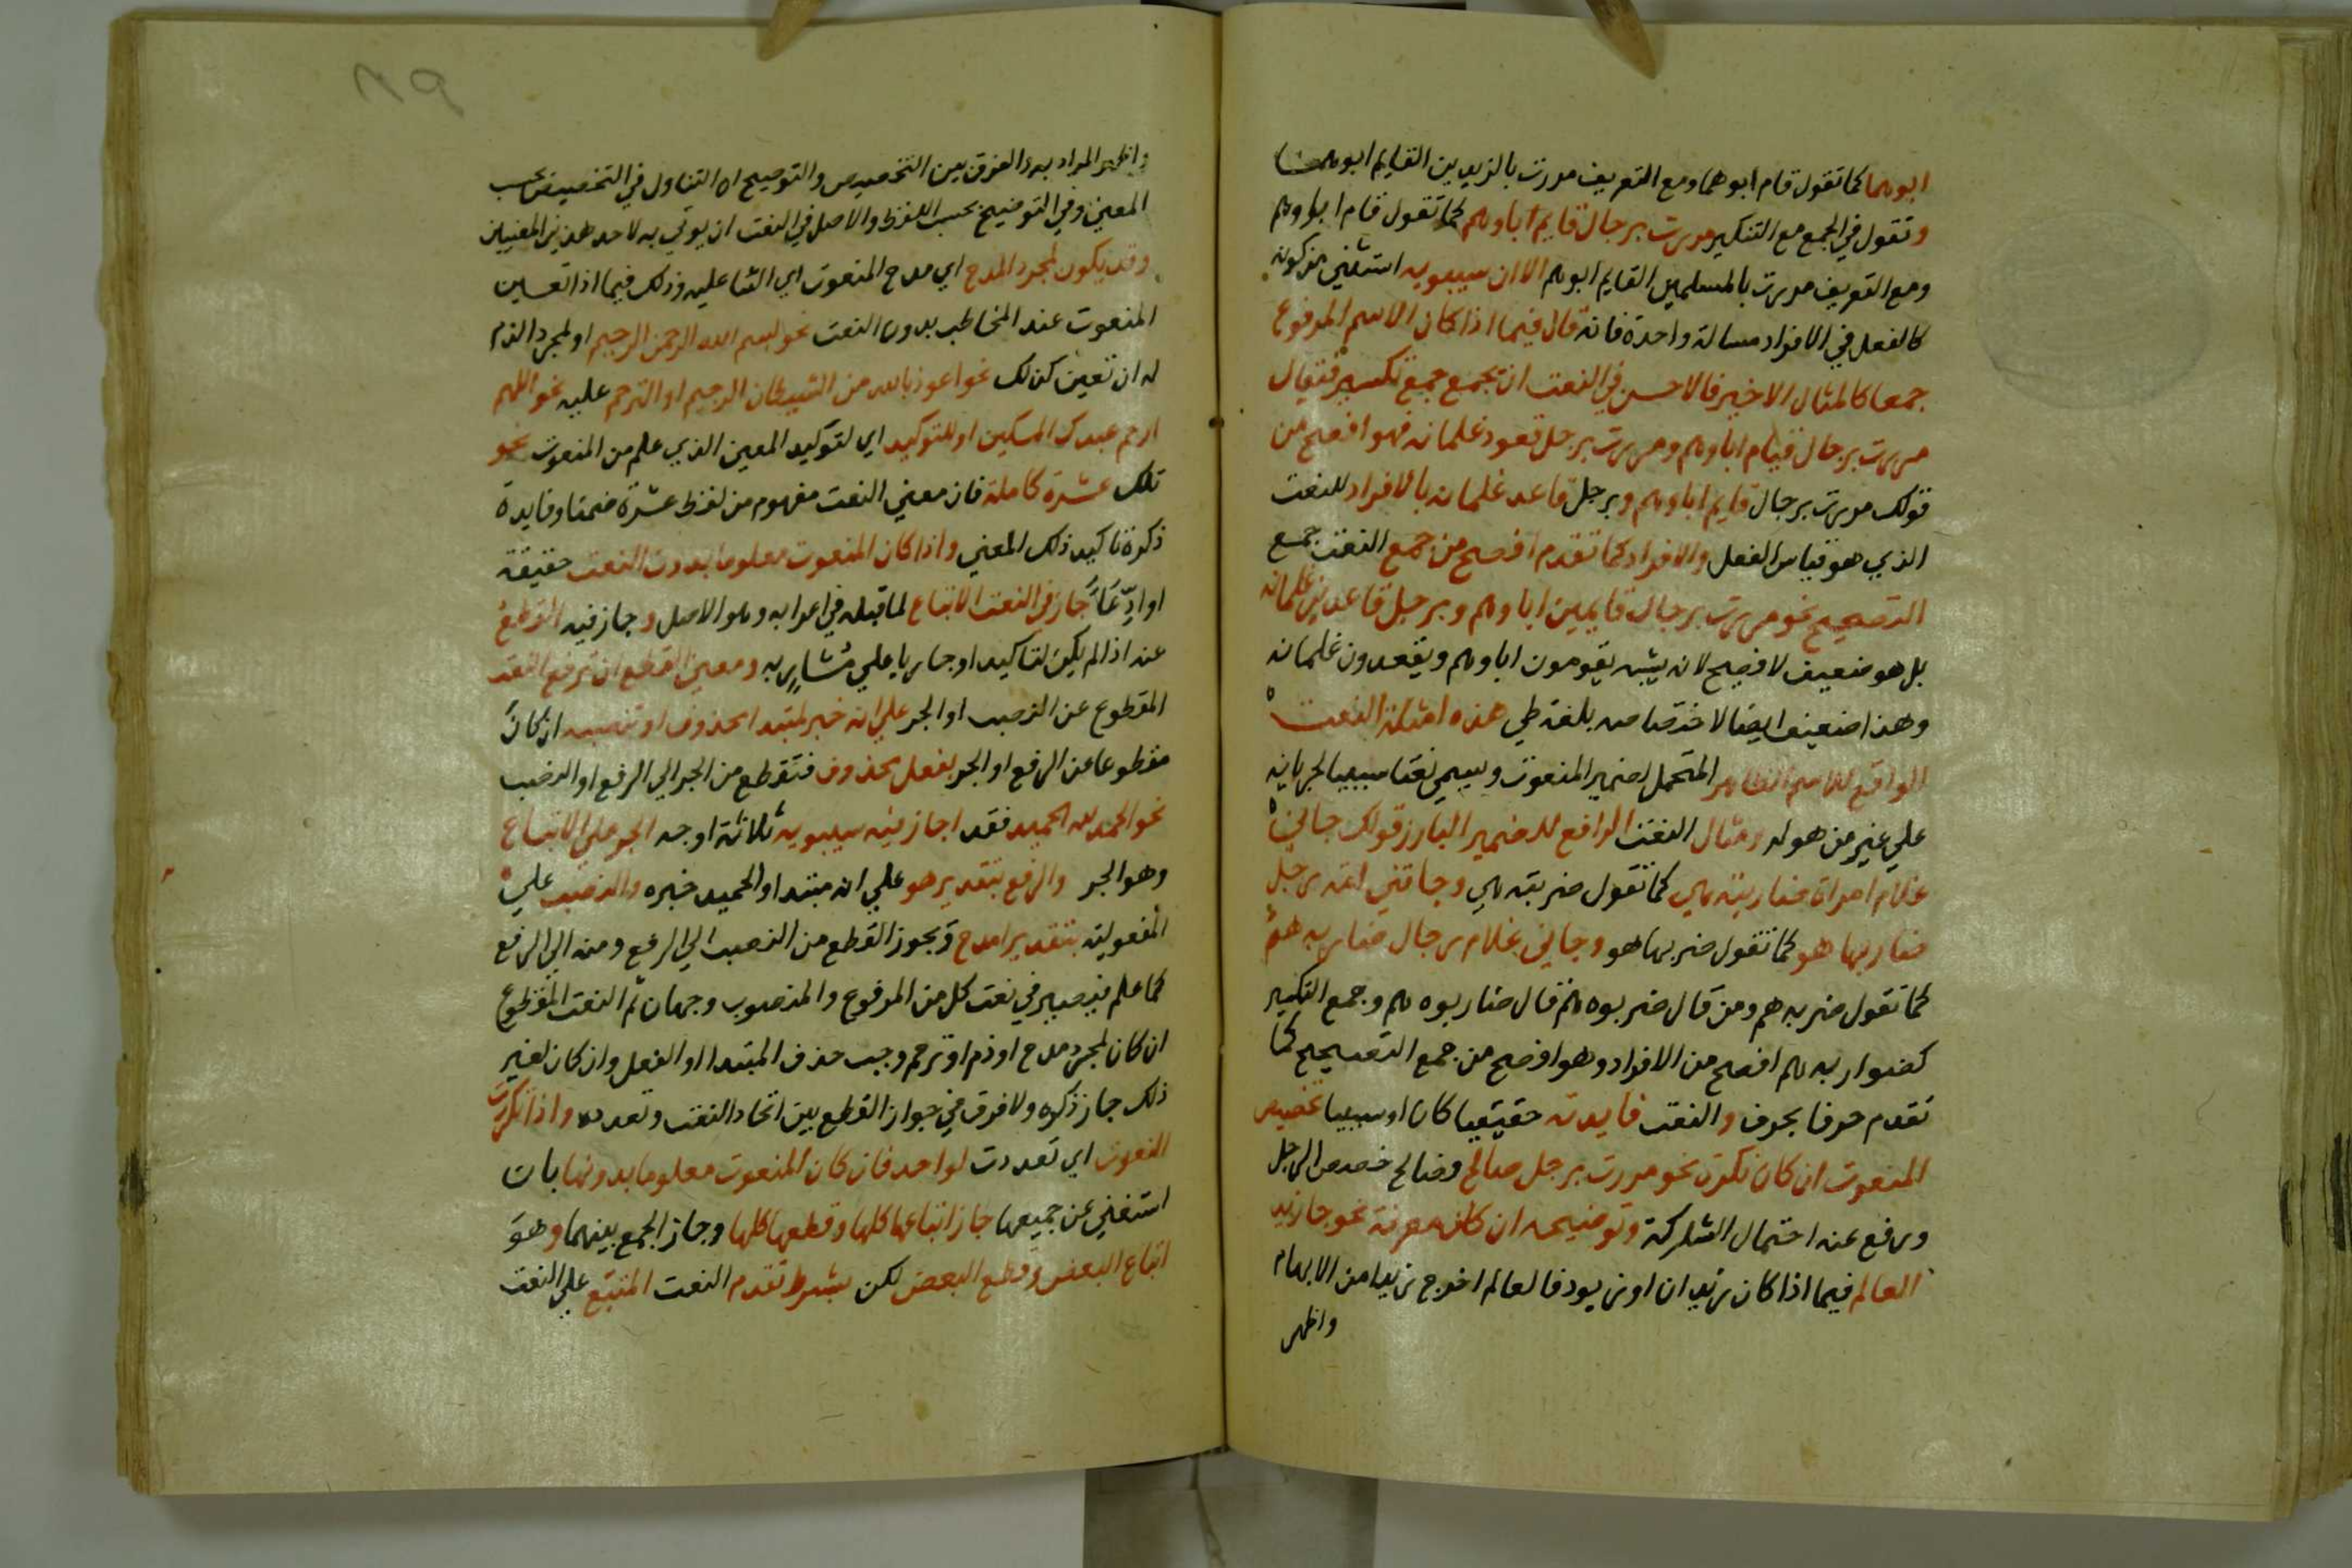 ابوهما كما تقول قام ابوهما ومع التعريف مررت بالزيدين القايم ابوهما
وتقول في الجمع مع التنكير مررت برجال قايم اباوهم كما تقول قام اباوهم
ومع التعريف مررت بالمسلمين القايم ابوهم الا ان سيبويه استثني من كونه
كالفعل في الافراد مسالة واحدة فانه قال فيما اذا كان الاسم المرفوع
جمعا كالمثال الاخير فالاحسن في النعت ان يجمع جمع تكسير فتقال
مررت برجال قيام اباوهم ومررت برجل قعود غلمانه فهو افصح من
قولك مررت برجال قايم اباوهم وبرجل قاعد غلمانه بالافراد للنعت
الذي هو قياس الفعل والافراد كما تقدم افصح من جمع النعت جمع
التصحيح نحو مررت برجال قايمين اباوهم وبرجل قاعدين غلمانه
بل هو ضعيف لا فصيح لانه يشبه يقومون اباوهم ويقعدون غلمانه
وهذا ضعيف ايضا لاختصاصه بلغة طي هذه امثلة النعت
الواقع للاسم الظاهر المتحمل لضمير المنعوت ويسمي نعتا سببيا لجريانه
علي غير من هو له ومثال النعت الرافع للضمير البارز قولك جاني
غلام امراة ضاربته هي كما تقول ضربته هي وجاتني امة رجل
ضاربها هو كما تقول ضربها هو وجاني غلام رجال ضاربه هم
كما تقول ضربه هم ومن قال ضربوه هم قال ضاربوه هم وجمع التكسير
كضواربه هم افصح من الافراد وهو افصح من جمع التصحيح كما
تقدم حرفا بحرف والنعت فايدته حقيقيا كان او سببيا تخصيص
المنعوت ان كان نكرة نحو مررت برجل صالح فصالح خصص الرجل
ورفع عنه احتمال الشركة وتوضيحه ان كان معرفة نحو جا زيد
العالم فيما اذا كان زيدان او زيود فالعالم اخرج زيدا من الابهام
واظهر
واظهر المراد به والفرق بين التخصيص والتوضيح ان التناول في التخصيص بحسب
المعني وفي التوضيح بحسب اللفظ والاصل في النعت ان يوتي به لاحد هذين المعنيين
وقد يكون لمجرد المدح اي مدح المنعوت اي الثنا عليه وذلك فيما اذا تعين
المنعوت عند المخاطب بدون النعت نحو بسم الله الرحمن الرحيم او لمجرد الذم
له ان تعين كذلك نحو اعوذ بالله من الشيطان الرجيم او الترحم عليه نحو اللهم
ارحم عبدك المسكين او للتوكيد اي لتوكيد المعين الذي علم من المنعوت نحو
تلك عشرة كاملة فان معني النعت مفهوم من لفظ عشرة ضمنا وفايدة
ذكره تاكيد ذلك المعني واذا كان المنعوت معلوما بدون النعت حقيقة
او ادِّعاً جاز في النعت الاتباع لما قبله في اعرابه وهو الاصل وجاز فيه القطع
عنه اذا لم يكن لتاكيد او جاريا علي مشار به ومعني القطع ان ترفع النعت
المقطوع عن النصب او الجر علي انه خبر لمبتدا محذوف او تنصبه ان كان
مقطوعا عن الرفع او الجر بفعل محذوف فتقطع من الجر الي الرفع او النصب
نحو الحمد لله الحميد فقد اجاز فيه سيبويه ثلاثة اوجه الجر علي الاتباع
وهو الجر والرفع بتقدير هو علي انه مبتدا والحميد خبره والنصب علي
المفعولية بتقدير امدح ويجوز القطع من النصب الي الرفع ومنه الي الرفع
كما علم فيصير في نعت كل من المرفوع والمنصوب وجهان ثم النعت المقطوع
ان كان لمجرد مدح او ذم او ترحم وجب حذف المبتدا او الفعل وان كان لغير
ذلك جاز ذكره ولا فرق في جواز القطع بين اتحاد النعت وتعدده واذا تكررت
النعوت اي تعددت لواحد فان كان المنعوت معلوما بدونها بان
استغني عن جميعها جاز اتباعها كلها وقطعها كلها وجاز الجمع بينهما وهو
اتباع البعض وقطع البعض لكن بشرط تقدم النعت المتبع علي النعت